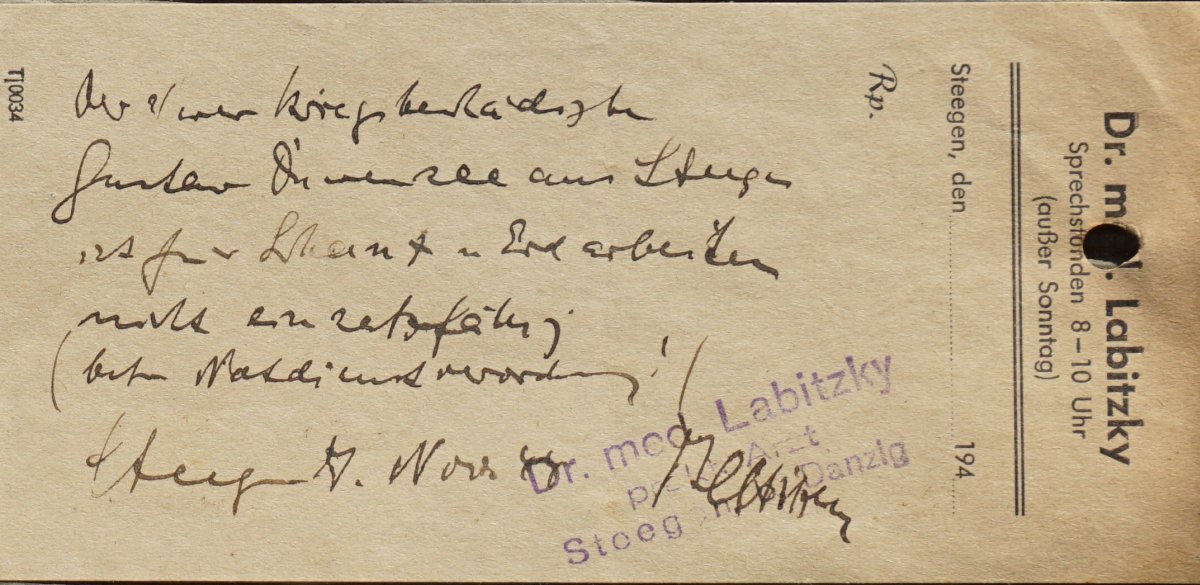 Dr. med. Labitzky
Sprechstunden 8–10 Uhr
(außer Sonntag)
Steegen, den 194
Rp.
Der schwer Kriegsbeschädigte
Gustav aus Steegen
ist für u Erdarbeiten
nicht einsatzfähig
(betr. Notdienstverordnung!)
Steegen Nov. 44
Dr. med. Labitzky
prakt. Arzt
Steegen Danzig
Dr Labitzky
Tj0034